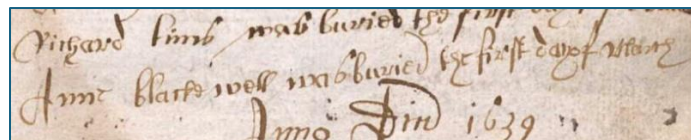 Richard kims was buried the first day of
Anne blackwell was buried the first day of March
Anno Dni 1639